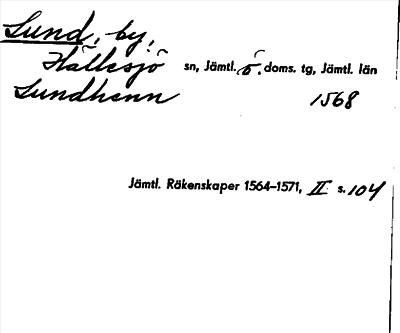 Lund, by,
Hällesjö sn, Jämtl. ö. doms. tg, Jämtl. län
Lundhenn 1568
Jämtl. Räkenskaper 1564–1571, II s. 104